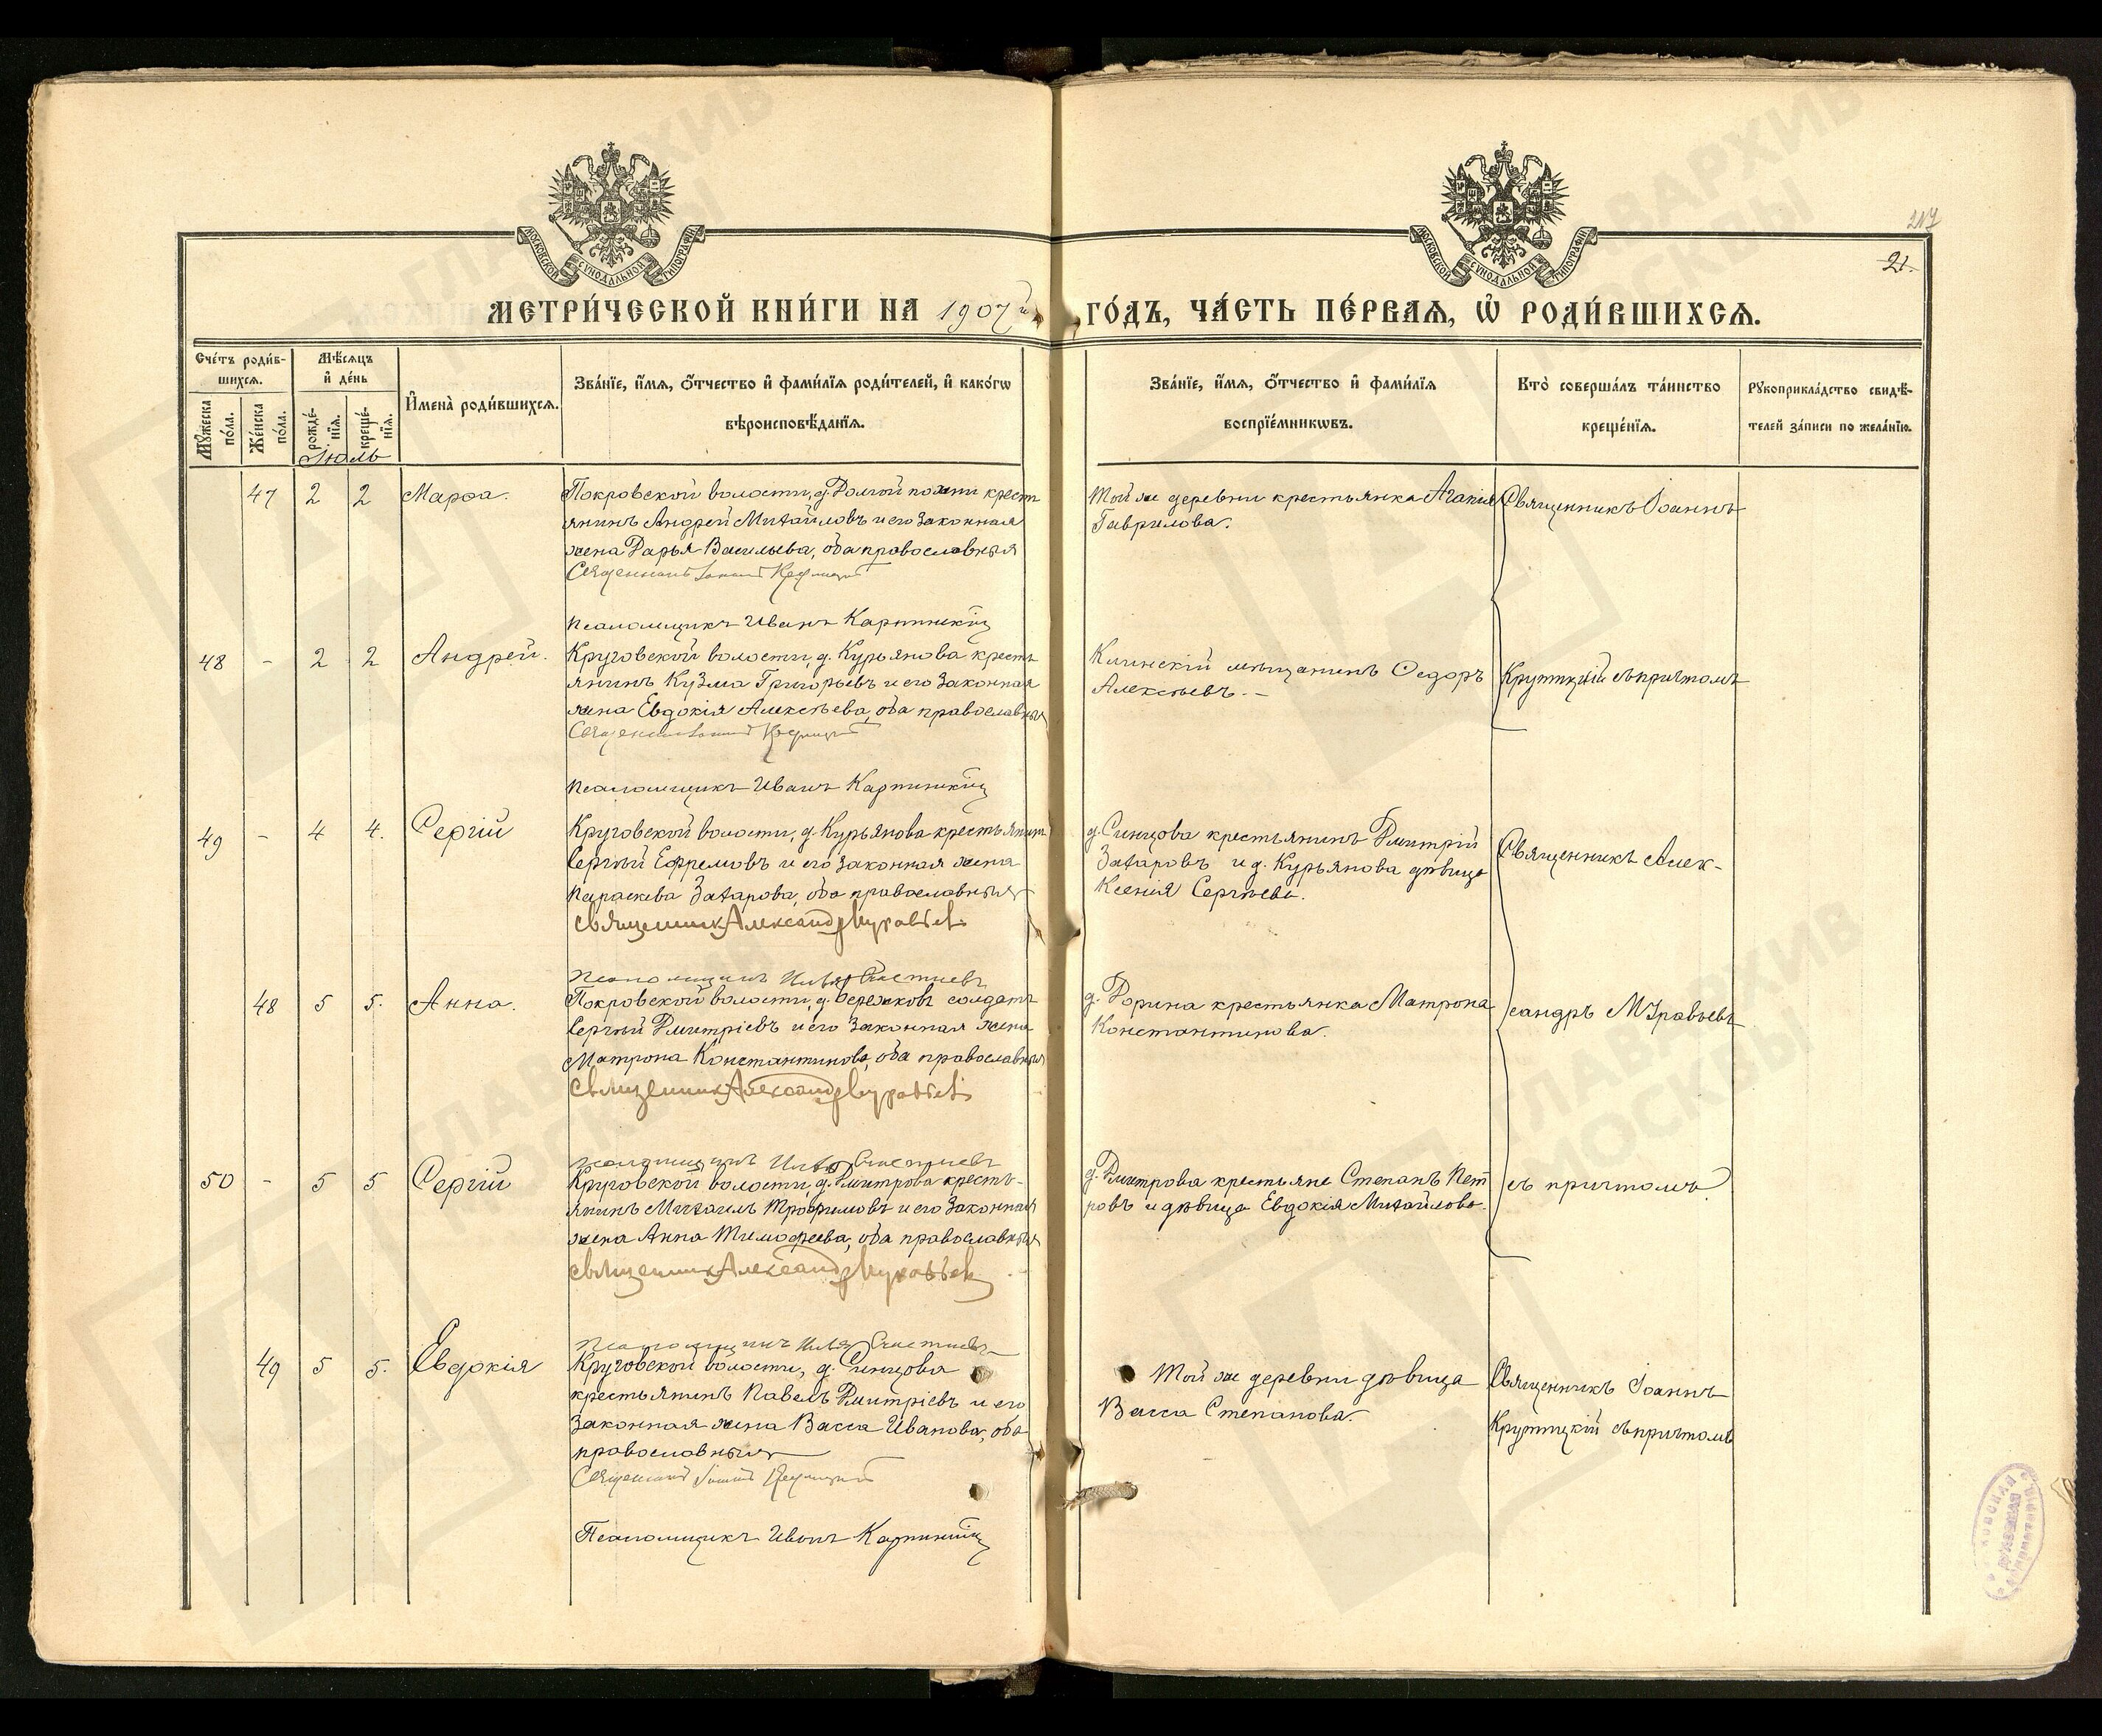 МОСКОВСКОЙ СѴНОДАЛЬНОЙ ТИПОГРАФІИ
МОСКОВСКОЙ СѴНОДАЛЬНОЙ ТИПОГРАФІИ
217
21.
МЕТРИ́ЧЕСКОЙ КНИ́ГИ НА 1907й ГО́ДЪ, ЧА́СТЬ ПЕ́РВАѦ, Ѡ҆ РОДИ́ВШИХСѦ.
Сче́тъ роди́в-
шихсѧ.
Мѣ́сѧцъ
и҆ де́нь
И҆мена̀ роди́вшихсѧ.
Зва́нїе, и҆́мѧ, ѻ҆́тчество и҆ фами́лїѧ роди́телей, и҆ како́гѡ
вѣроисповѣ́данїѧ.
Зва́нїе, и҆́мѧ, ѻ҆́тчество и҆ фами́лїѧ
воспрїе́мникѡвъ.
Кто̀ соверша́лъ та́инство
креще́нїѧ.
Рꙋкоприкла́дство свидѣ́-
телей за́писи по жела́нїю.
Мꙋ́жеска
по́ла.
Же́нска
по́ла.
рожде́-
нїѧ.
креще́-
нїѧ.
Июль
47 2 2 Марѳа.
Покровской волости, д. Долгой пожни кресть
янинъ Андрей Михайловъ и его законная
жена Дарья Васильева, оба православныя
Священникъ Іоаннъ Крутицкій
Псаломщикъ Иванъ
Той же деревни крестьянка Агапія
Гаврилова.
Священникъ Іоаннъ
48 - 2 2 Андрей.
Круговской волости, д. Курьянова кресть
янинъ Кузма Григорьевъ и его законная
жена Евдокія Алексѣева, оба православныя
Священникъ Іоаннъ Крутицкій
Псаломщикъ Иванъ
Клинскій мѣщанинъ Ѳедоръ
Алексѣевъ. -
Крутицкій съ причтомъ
49 - 4 4. Сергій
Круговской волости, д. Курьянова крестьянинъ
Сергѣй Ефремовъ и его законная жена
Параскева Захарова, оба православныя
Священникъ Александръ Муравьевъ
Псаломщикъ
д. Синцова крестьянинъ Дмитрій
Захаровъ и д. Курьянова дѣвица
Ксенія Сергѣева.
Священникъ Алек-
48 5 5. Анна.
Покровской волости, д. солдатъ
Сергѣй Дмитріевъ и его законная жена
Матрона Константинова, оба православныя
Священникъ Александръ Муравьевъ
Псаломщикъ
д. Дорина крестьянка Матрона
Константинова.
сандръ Муравьевъ
50 - 5 5 Сергій
Круговской волости, д. Дмитрова кресть-
янинъ Михаилъ Трофимовъ и его законная
жена Анна Тимофеева, оба православныя
Священникъ Александръ Муравьевъ
Псаломщикъ
д. Дмитрова крестьяне Степанъ Пет
ровъ и дѣвица Евдокія Михайлова.
съ причтомъ.
49 5 5. Евдокія
Круговской волости, д. Синцова
крестьянинъ Павелъ Дмитріевъ и его
законная жена Васса Иванова, оба
православныя
Священникъ Іоаннъ Крутицкій
Псаломщикъ Иванъ
Той же деревни дѣвица
Васса Степанова.
Священникъ Іоаннъ
Крутицкій съ причтомъ
ГЛАВАРХИВ
МОСКВЫ